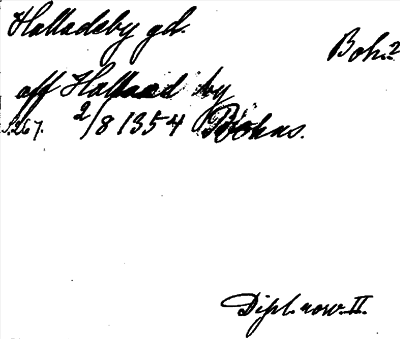 Halladsby gd.
Boh.?
aff Hallaad by
s.267. 2/8 1354 Bohus.
Dipl. norv. II.